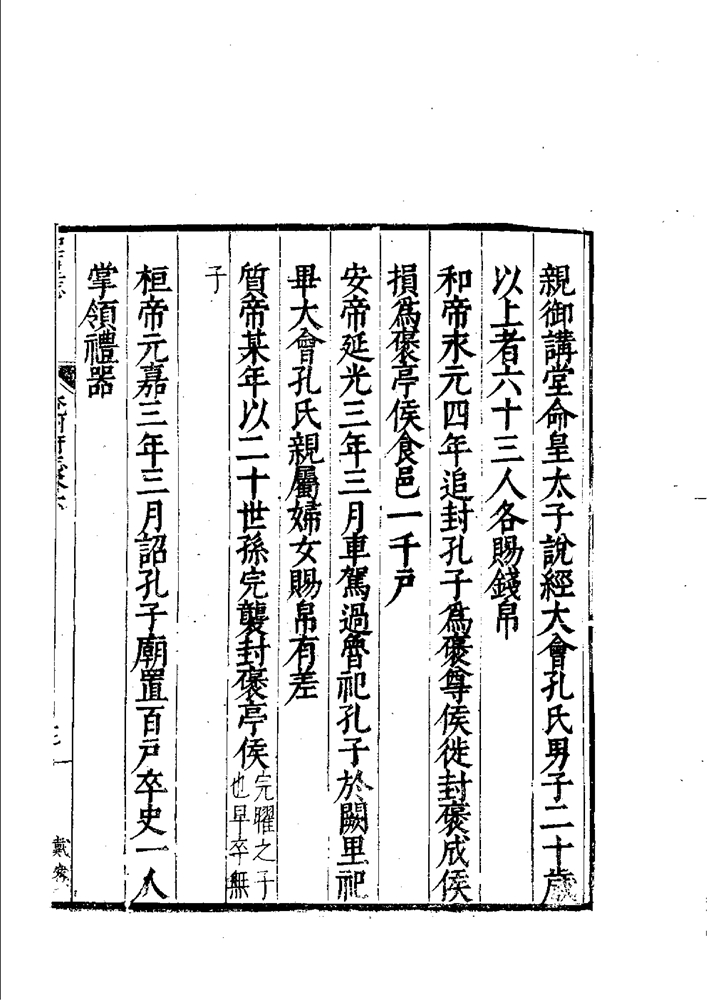 親御講堂命皇太子說經大會孔氏男子二十歲
以上者六十三人各賜錢帛
和帝永元四年追封孔子爲襃尊侯徙封襃成侯
損爲襃亭侯食邑一千戸
安帝延光三年三月車駕過魯祀孔子於闕里祀
畢大會孔氏親屬婦女賜帛有差
質帝某年以二十世孫完襲封襃亭侯完曜之子
也早卒無
子
桓帝元嘉三年三月詔孔子廟置百戸卒史一人
掌領禮器